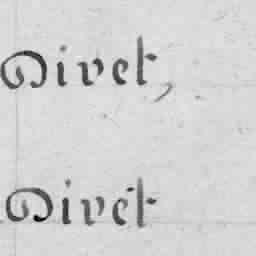 Divet,
Divet